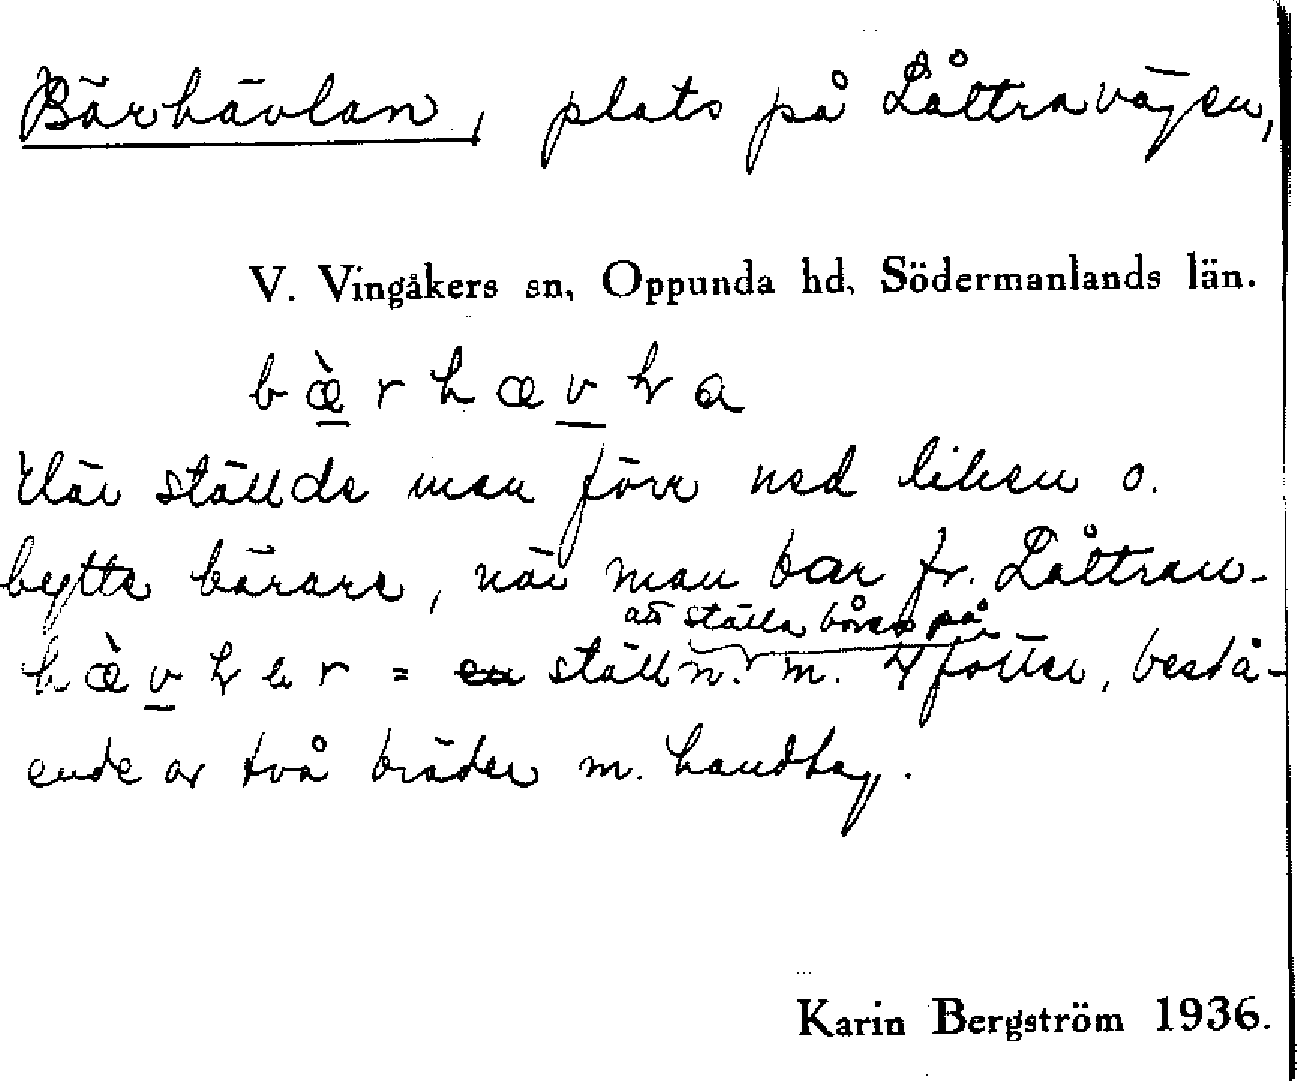 Bärhävlan, plats på Låltravägen,
V. Vingåkers sn, Oppunda hd, Södermanlands län.
Här ställde man förr ned liken o.
bytte bärare, när man bar fr. Låltran-
att ställa båren på
= ställ n. m. 4 fötter, bestå-
ende av två bräder m. handtag.
Karin Bergström 1936.